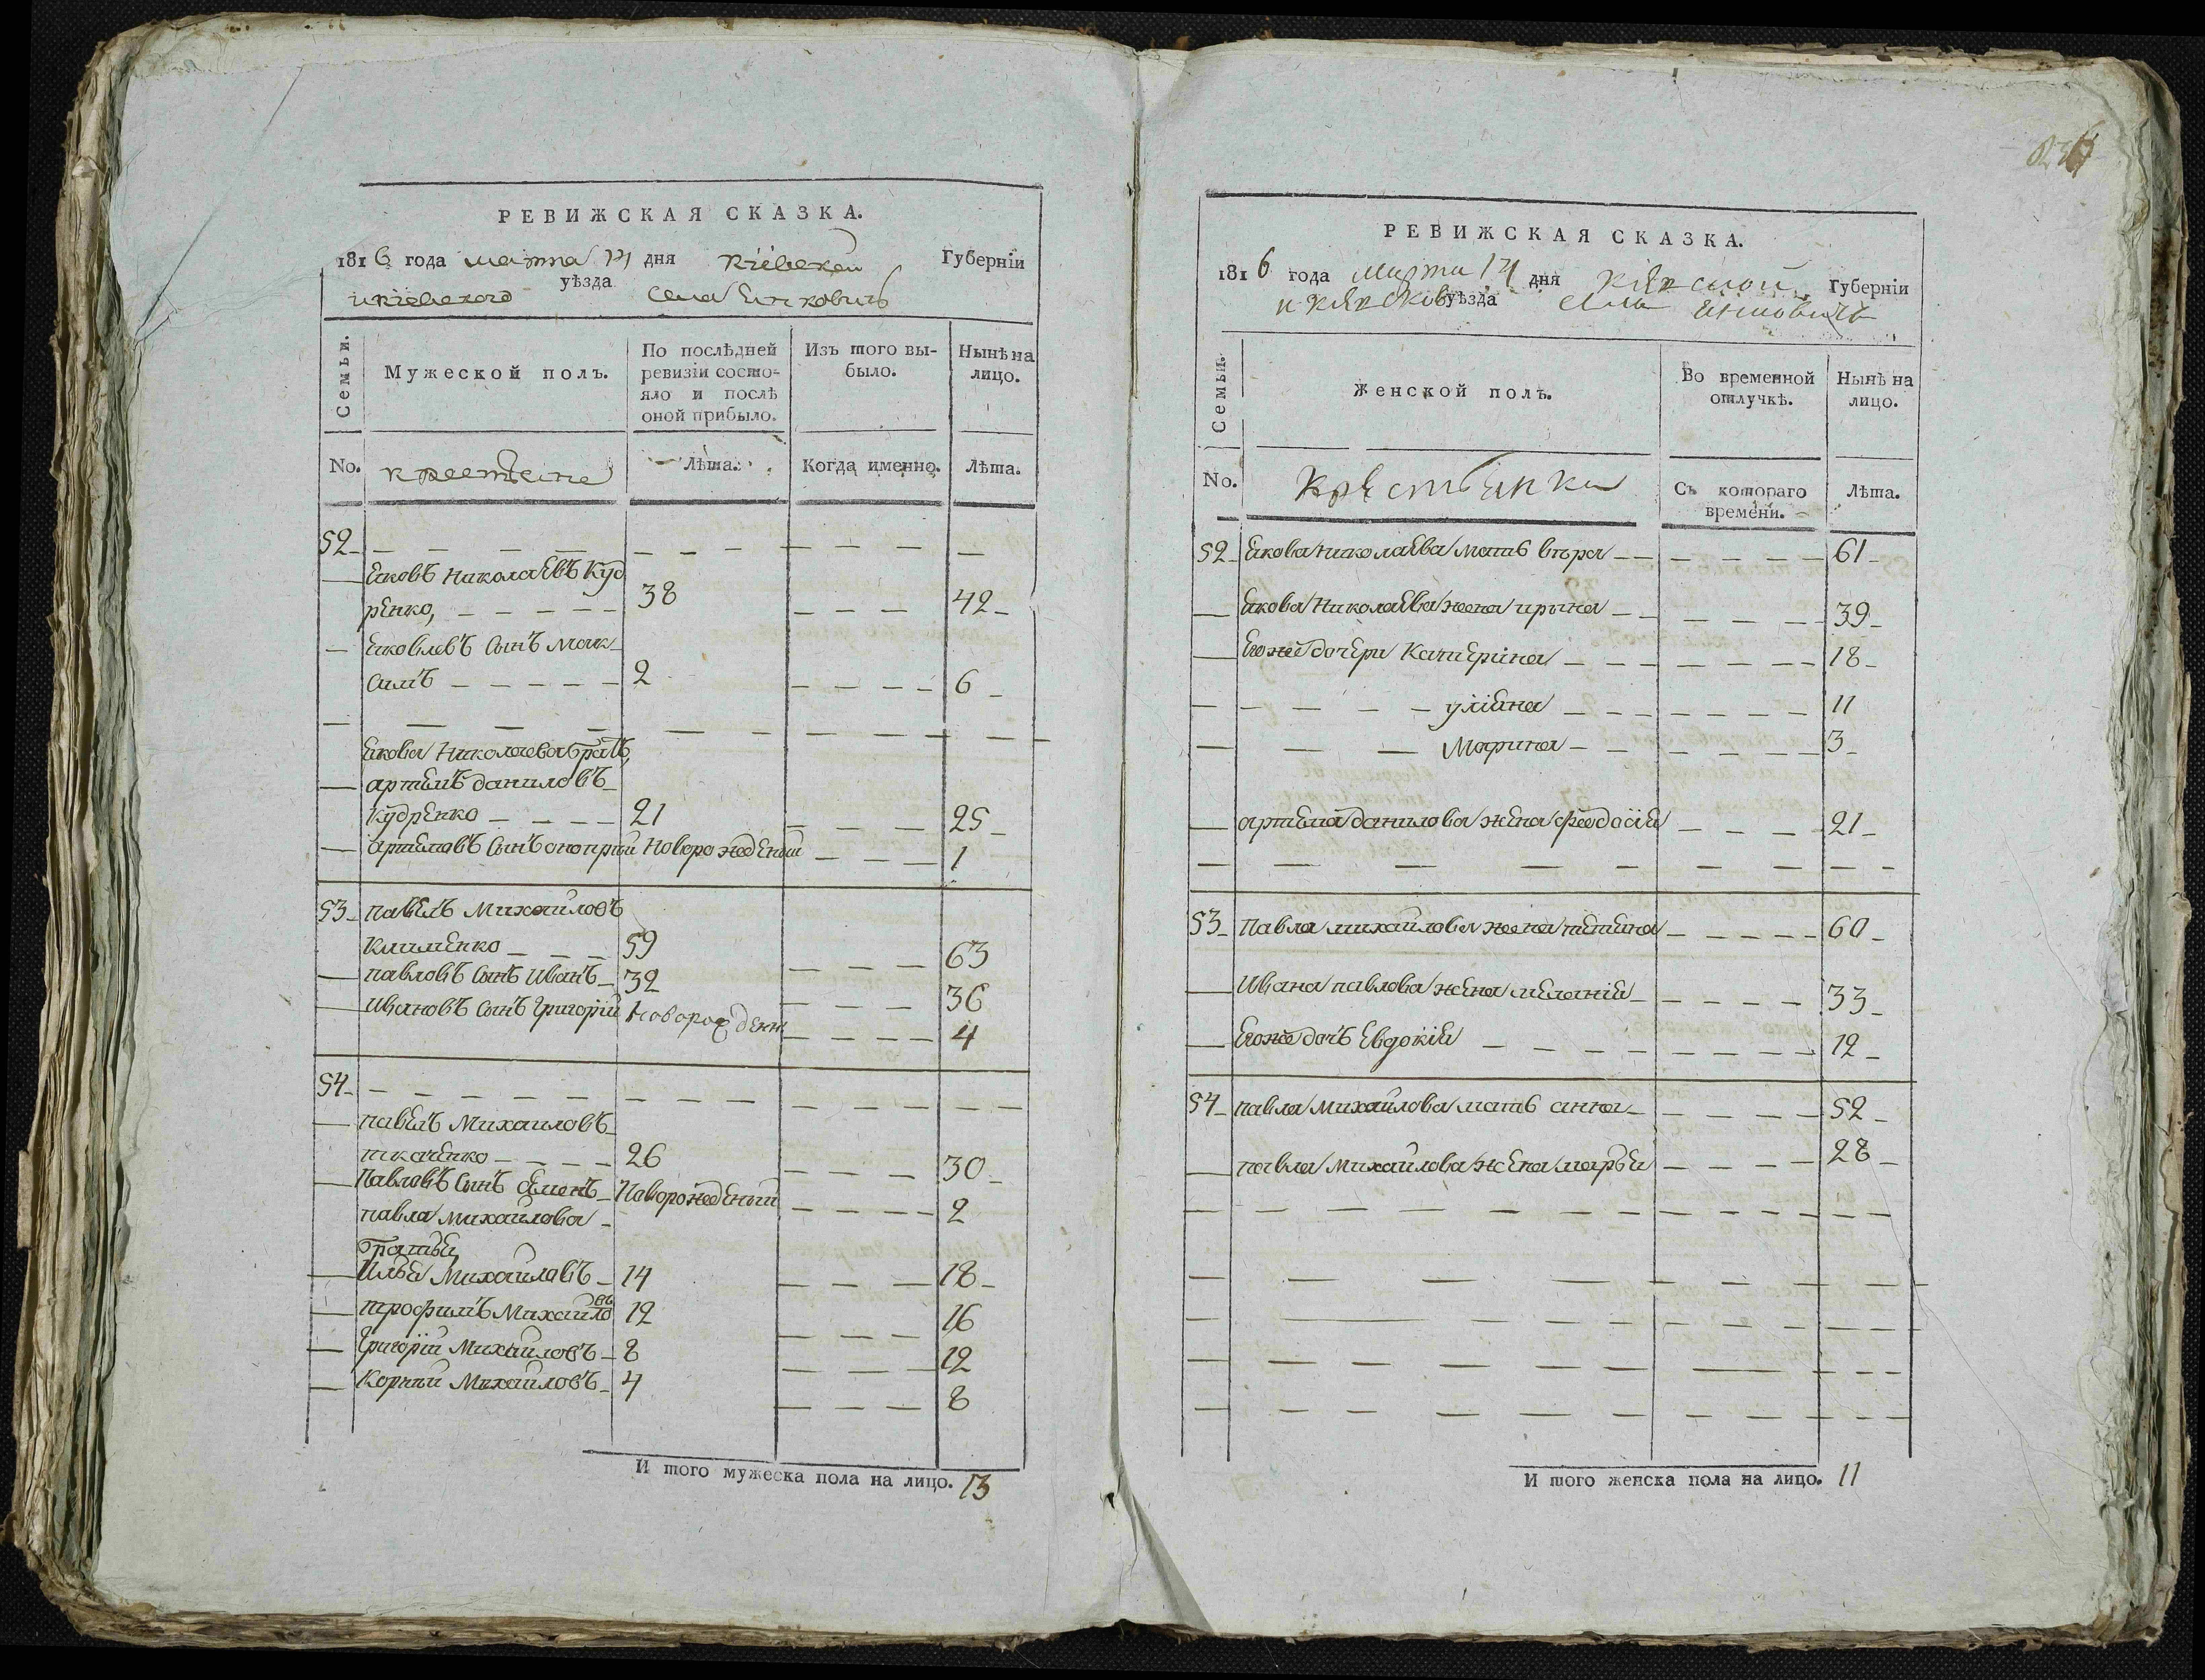 РЕВИЖСКАЯ СКАЗКА.
1816 года марта 14 дня Кіевской Губерніи
и кіевского уѣзда Села
Семьи.
Мужеской полъ.
По послѣдней ревизіи состояло и послѣ оной прибыло.
Изъ того выбыло.
Нынѣ на лицо.
No. крестьяне Лѣта. Когда именно. Лѣта.
52
Яковъ Николаевъ Куд
ренко, 38 42
Яковлевъ Сынъ Мак
симъ 2 6
Якова Николаева братъ,
артемъ даниловъ
Кудренко 21 25
артемовъ Сынъ оноприй Новорожденый 1
53 павелъ Михайловъ
Клименко 59 63
павловъ Сынъ Иванъ 32 36
Ивановъ Сынъ Григорій Новорожденн 4
54
павелъ Михайловъ
ткаченко 26 30
Павловъ Сынъ Семенъ Новорожденый 2
павла Михайлова
братья
Илья Михайловъ 14 18
трофимъ Михайловъ 12 16
Григорій Михайловъ 8 12
Корнѣй Михайловъ 4 8
И того мужеска пола на лицо. 13
РЕВИЖСКАЯ СКАЗКА.
1816 года Марта 14 дня Губерніи
уѣзда села
Семьи.
Женской полъ.
Во временной отлучкѣ.
Нынѣ на лицо.
No. Крестьянки Съ котораго времени. Лѣта.
52 Якова Николаева мать 61
Якова Николаева жена ирина 39
Егоже дочери Катерина 18
уліяна 11
Марина 3
артема данилова жена феодосія 21
53 Павла михайлова жена татьяна 60
Ивана павлова жена меланія 33
Егоже дочь Евдокія 12
54 павла Михайлова мать анна 52
павла Михайлова жена марья 28
И того женска пола на лицо. 11